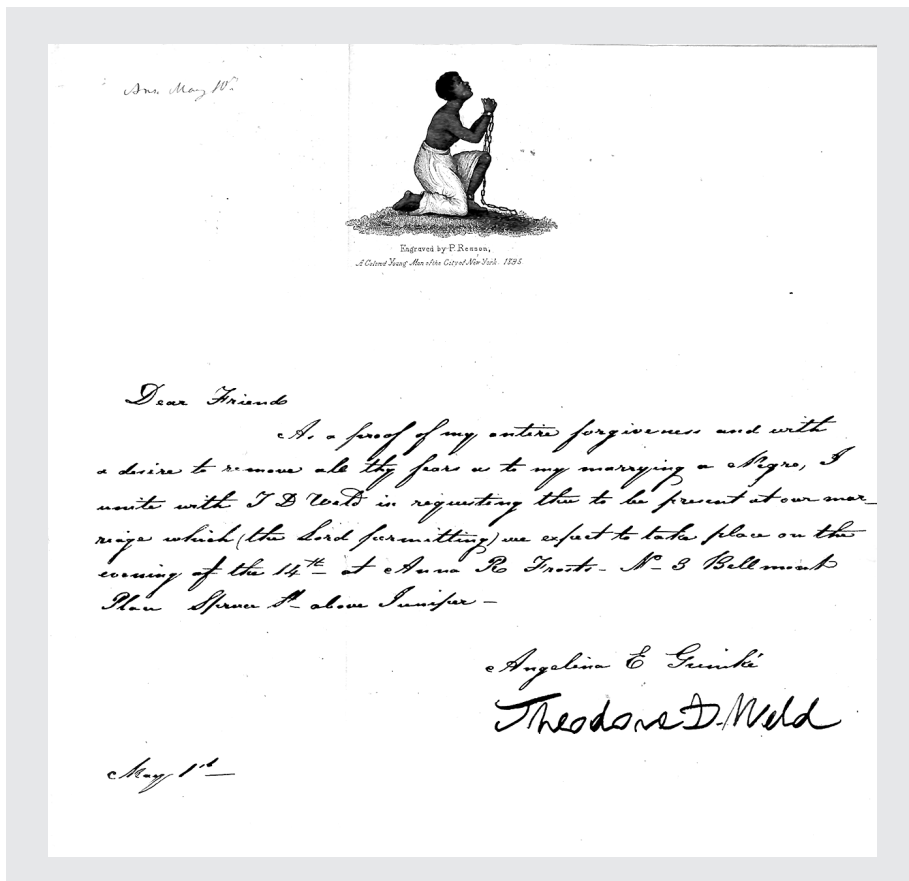 Ans. May 10th
Engraved by P. Reason,
A Colored Young Man of the City of New York. 1835
Dear Friend
As a proof of my entire forgiveness and with
a desire to remove all thy fears as to my marrying a Negro, I
unite with T D Weld in requesting thee to be present at our mar-
riage which (the Lord permitting) we expect to take place on the
evening of the 14th at Anna R Frosts - No 3 Bellmont
Place Spruce St - above Juniper -
Angelina E Grimké
Theodore D. Weld
May 1st